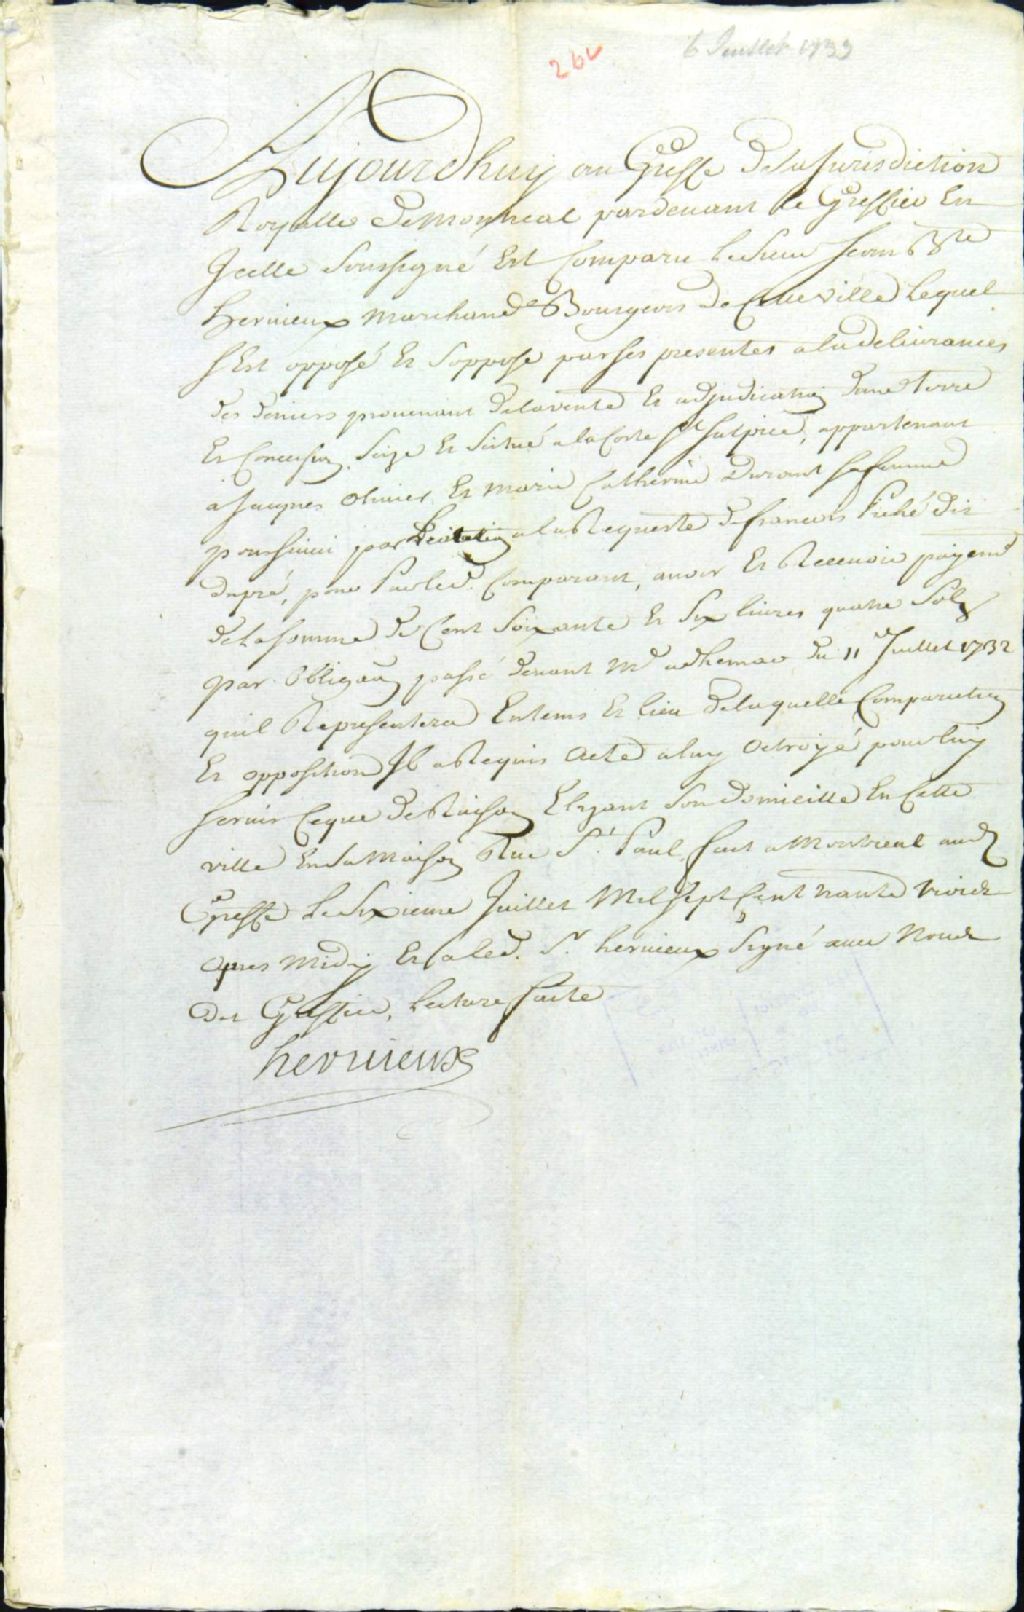 262 6 Juillet 1733
Aujourdhuy au Greffe De la Jurisdiction
Royalle De Montreal pardevant le Greffier En
Jcelle Soussigné Est Comparu Le Sieur Jean Bte
hervieux Marchand Bourgeois de Cette ville Lequel
sEst opposé Et Soppose par ses presentes a la delivrances
des deniers provenant De la vente Et adjudication dune terre
Et Concession Size Et Scitué a la Coste St Sulpice, appartenant
a Jacques olivier Et marie Catherine Durant Sa femme
poursuivi par a la Requeste de francois Piché dit
dupré, pour Par led. Comparant, avoir Et Recevoir payemt
de La Somme De Cent Soixante Et Six livres quatre Solz
par obligaon passé devant Me adhemar du 11e Juillet 1732
quil Representera En tems Et lieu de laquelle Comparution
Et opposition Jl a Requis acte a luy octroyé pour luy
Servir Ce que De Raison Elizant Son domicille En Cette
ville En Sa Maison Rue St. Paul, fait a Montreal aud
Greffe Le Sixieme Juillet Mil Sept Cent trante trois
apres Midy Et a led. Sr. hervieux Signé avec Nous
dit Greffier, Lecture faite
hervieux